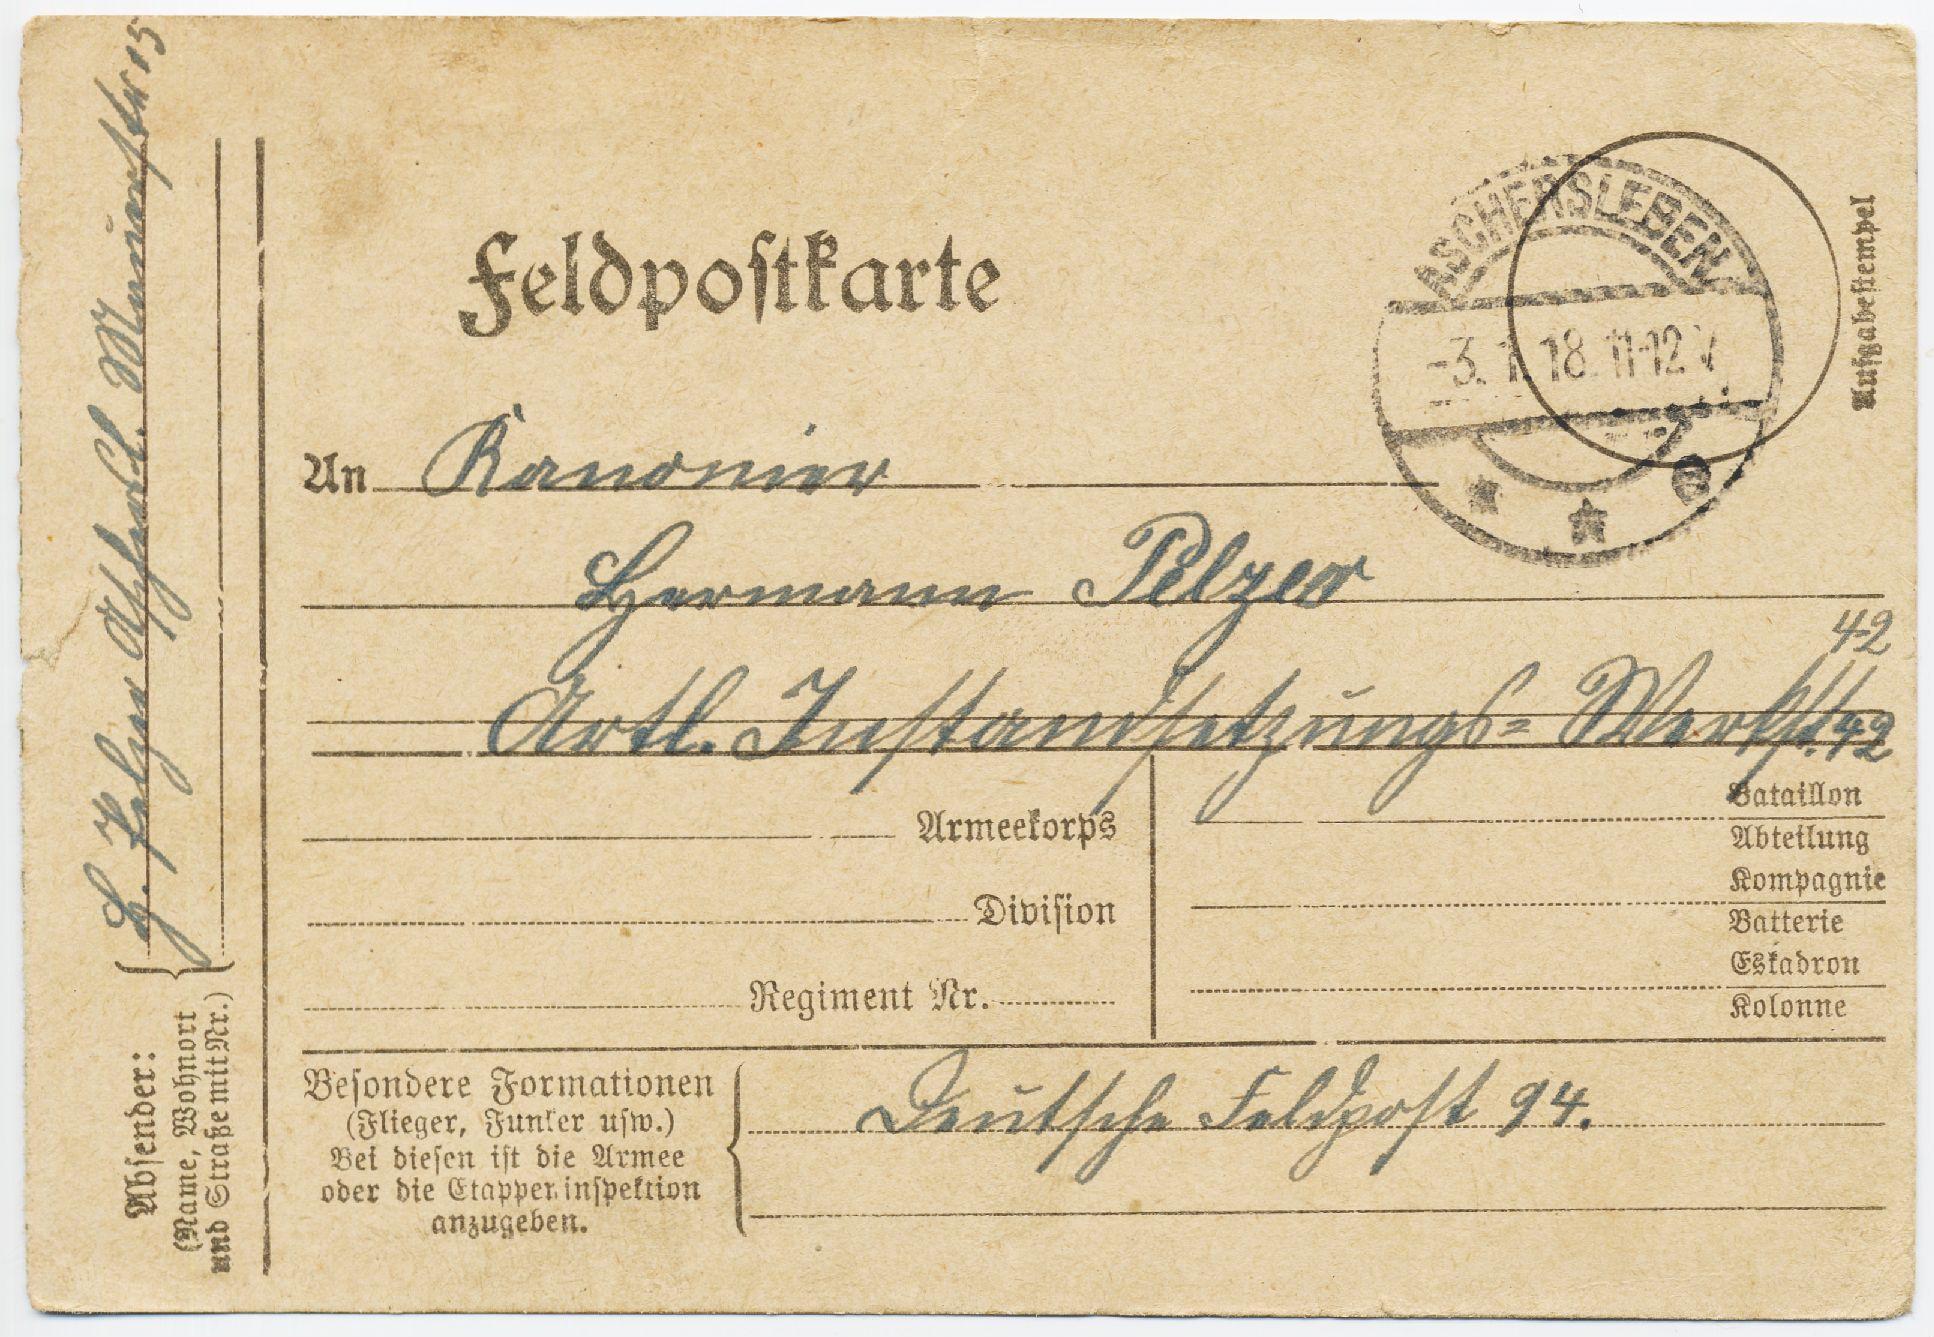 Feldpostkarte
ASCHERSLEBEN
-3.1.18.11-12V.
* * e
Aufgabestempel
An Kanonier
Hermann Pelzer
42
Artl. Instandsetzungs= Werkst. 42
Armeekorps
Division
Regiment Nr.
Bataillon
Abteilung
Kompagnie
Batterie
Eskadron
Kolonne
Besondere Formationen
(Flieger, Funker usw.)
Bei diesen ist die Armee
oder die Etappeninspektion
anzugeben.
Deutsche Feldpost 94.
Absender:
(Name, Wohnort
und Straße mit Nr.)
H.
15